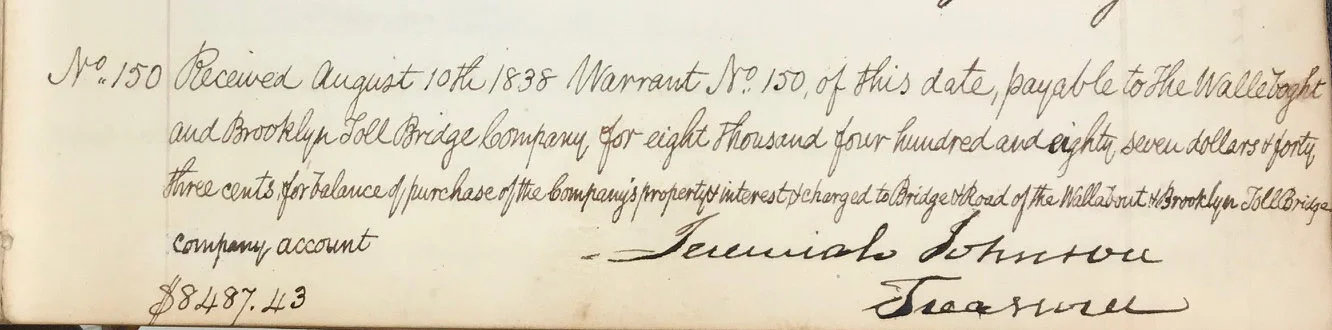 No. 150 Received August 10th 1838 Warrant No. 150, of this date, payable to the Walleboght
and Brooklyn Toll Bridge Company, for eight thousand four hundred and eighty seven dollars & forty
three cents, for balance of purchase of the Company's property & interest & charged to Bridge & Road of the Wallabout & Brooklyn Toll Bridge
company account
Jeremiah Johnson
$8487.43
Treasurer